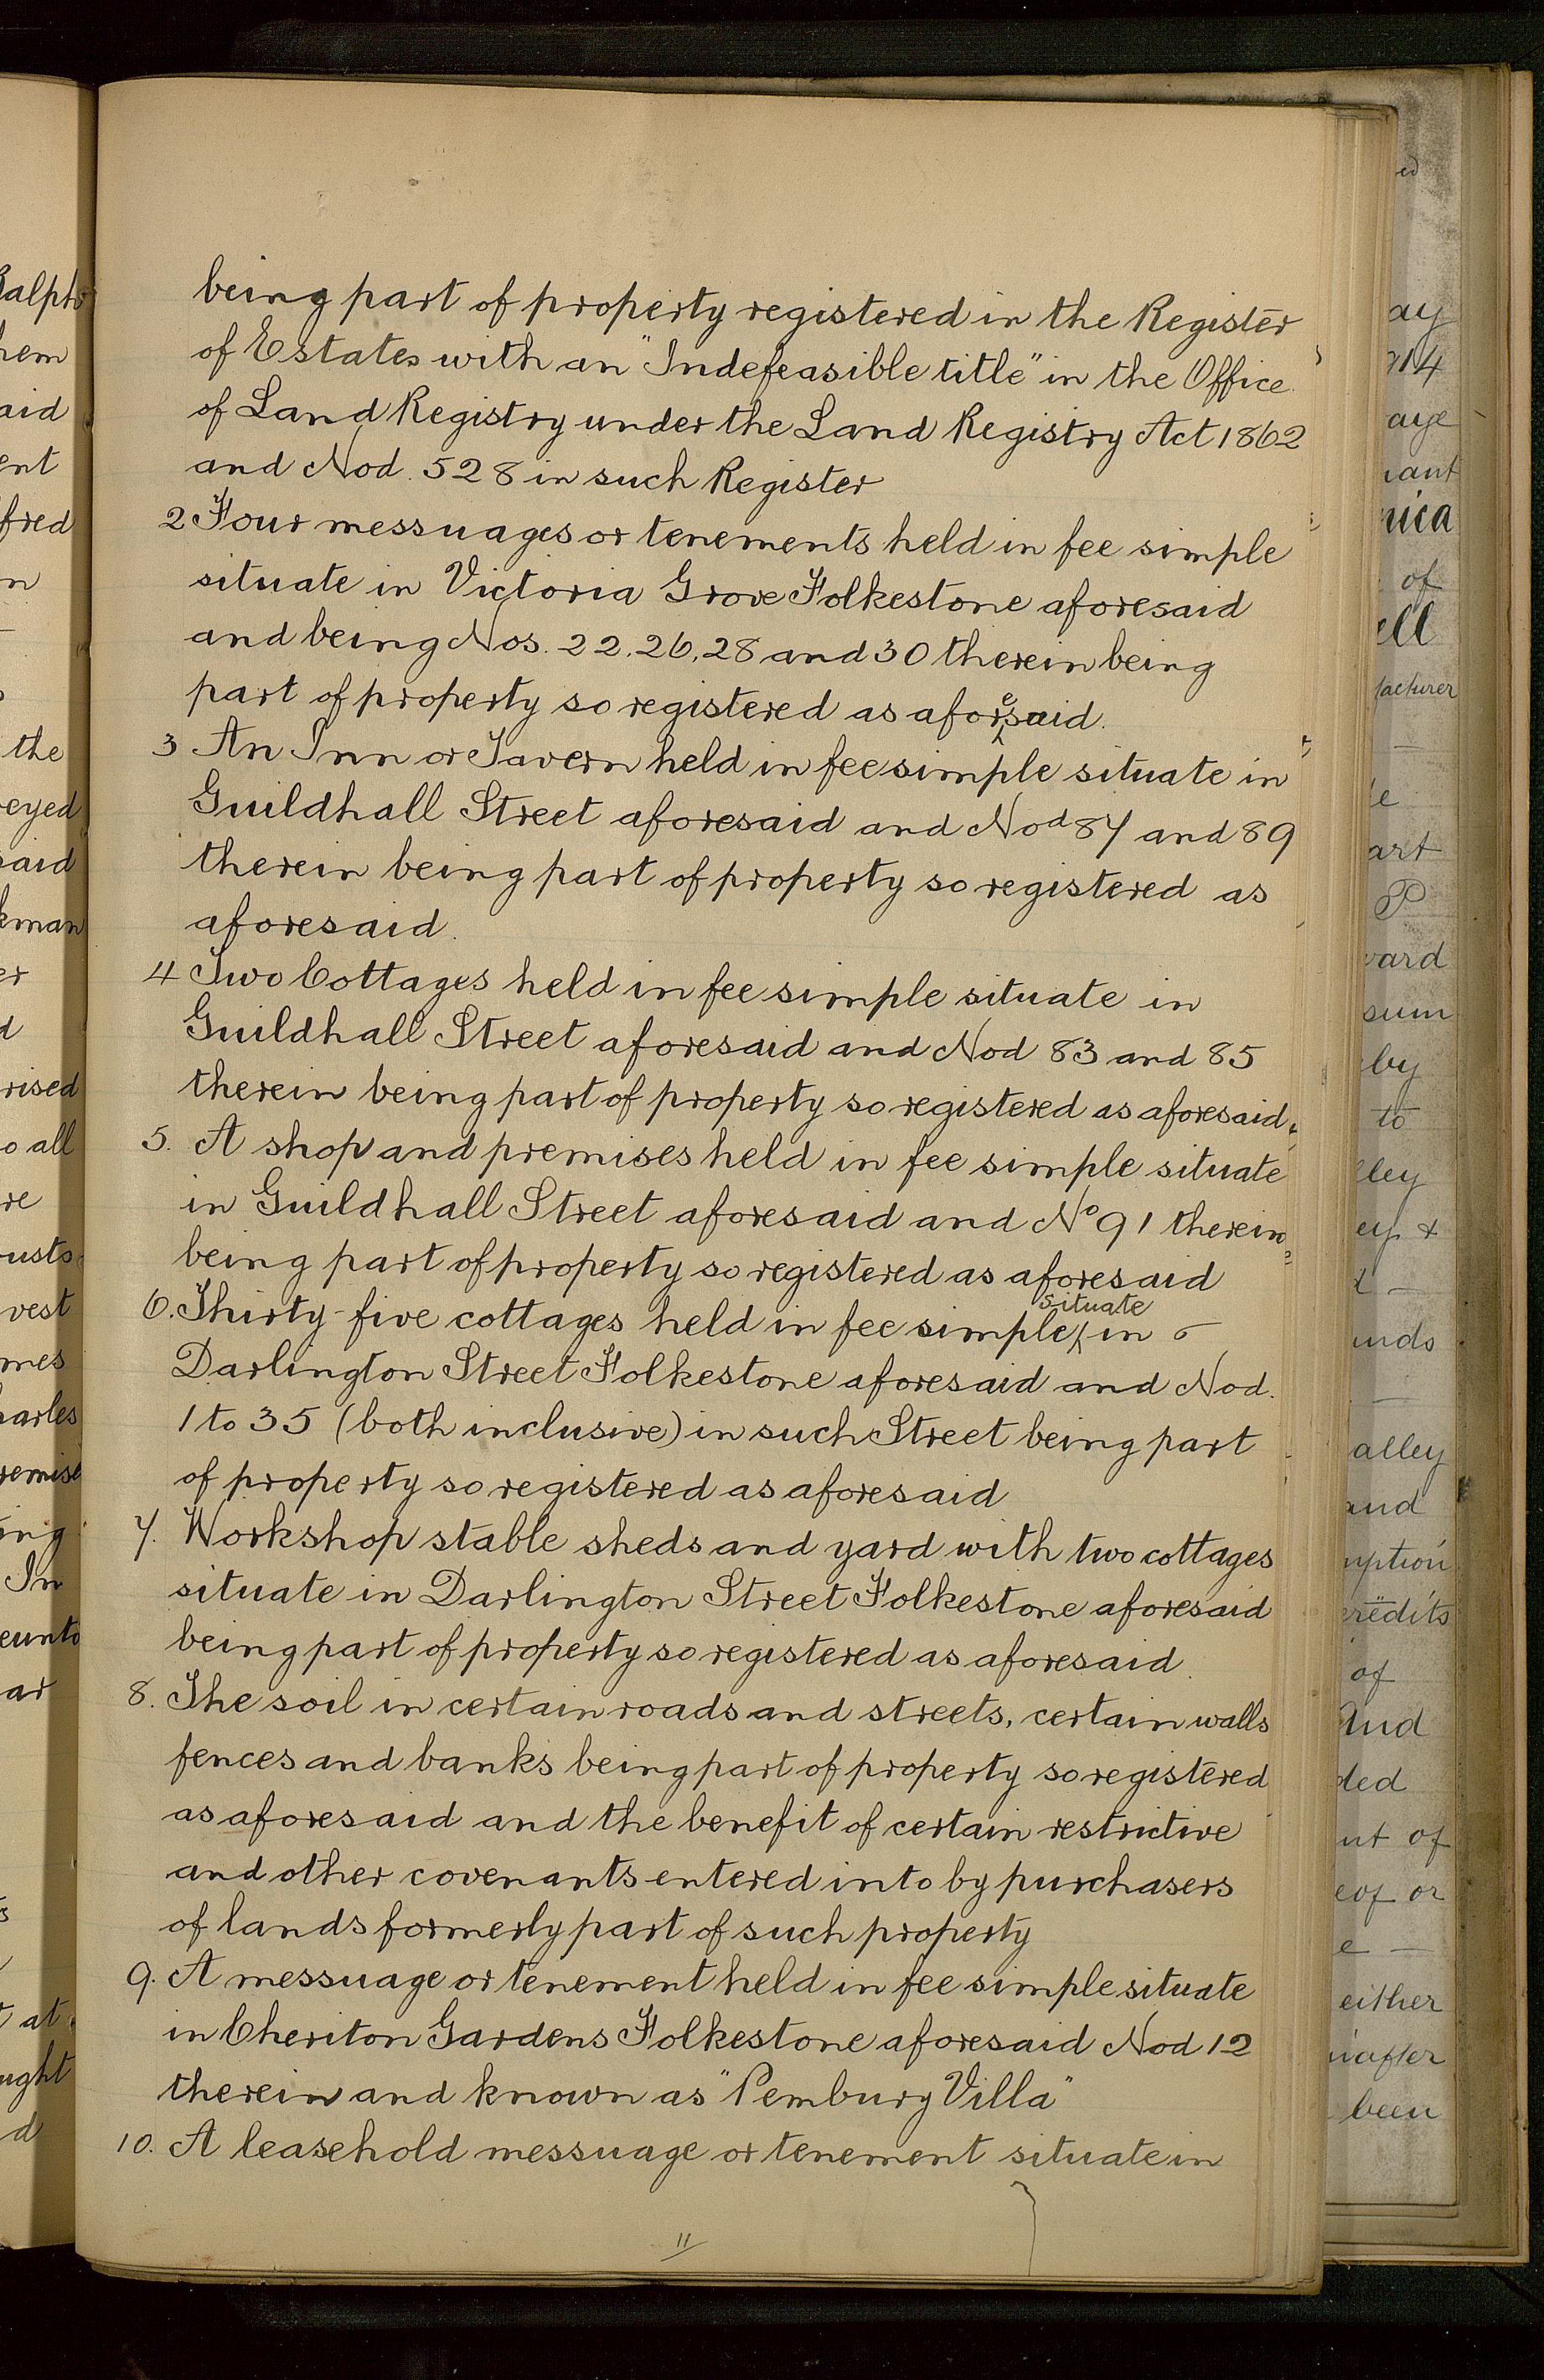 being part of property registered in the Register
of Estates with an "Indefeasible title" in the Office
of Land Registry under the Land Registry Act 1862
and Nod. 528 in such Register
2 Four messuages or tenements held in fee simple
situate in Victoria Grove Folkestone aforesaid
and being Nos. 22, 26, 28 and 30 therein being
part of property so registered as aforesaid.
3 An Inn or Tavern held in fee simple situate in
Guildhall Street aforesaid and Nod 87 and 89
therein being part of property so registered as
aforesaid.
4 Two Cottages held in fee simple situate in
Guildhall Street aforesaid and Nod 83 and 85
therein being part of property so registered as aforesaid.
5. A shop and premises held in fee simple situate
in Guildhall Street aforesaid and No 91 therein
being part of property so registered as aforesaid
6. Thirty-five cottages held in fee simple situate in
Darlington Street Folkestone aforesaid and Nod.
1 to 35 (both inclusive) in such Street being part
of property so registered as aforesaid
7. Workshop stable sheds and yard with two cottages
situate in Darlington Street Folkestone aforesaid
being part of property so registered as aforesaid.
8. The soil in certain roads and streets, certain walls
fences and banks being part of property so registered
as aforesaid and the benefit of certain restrictive
and other covenants entered into by purchasers
of lands formerly part of such property
9. A messuage or tenement held in fee simple situate
in Cheriton Gardens Folkestone aforesaid Nod 12
therein and known as "Pembury Villa"
10. A leasehold messuage or tenement situate in
11